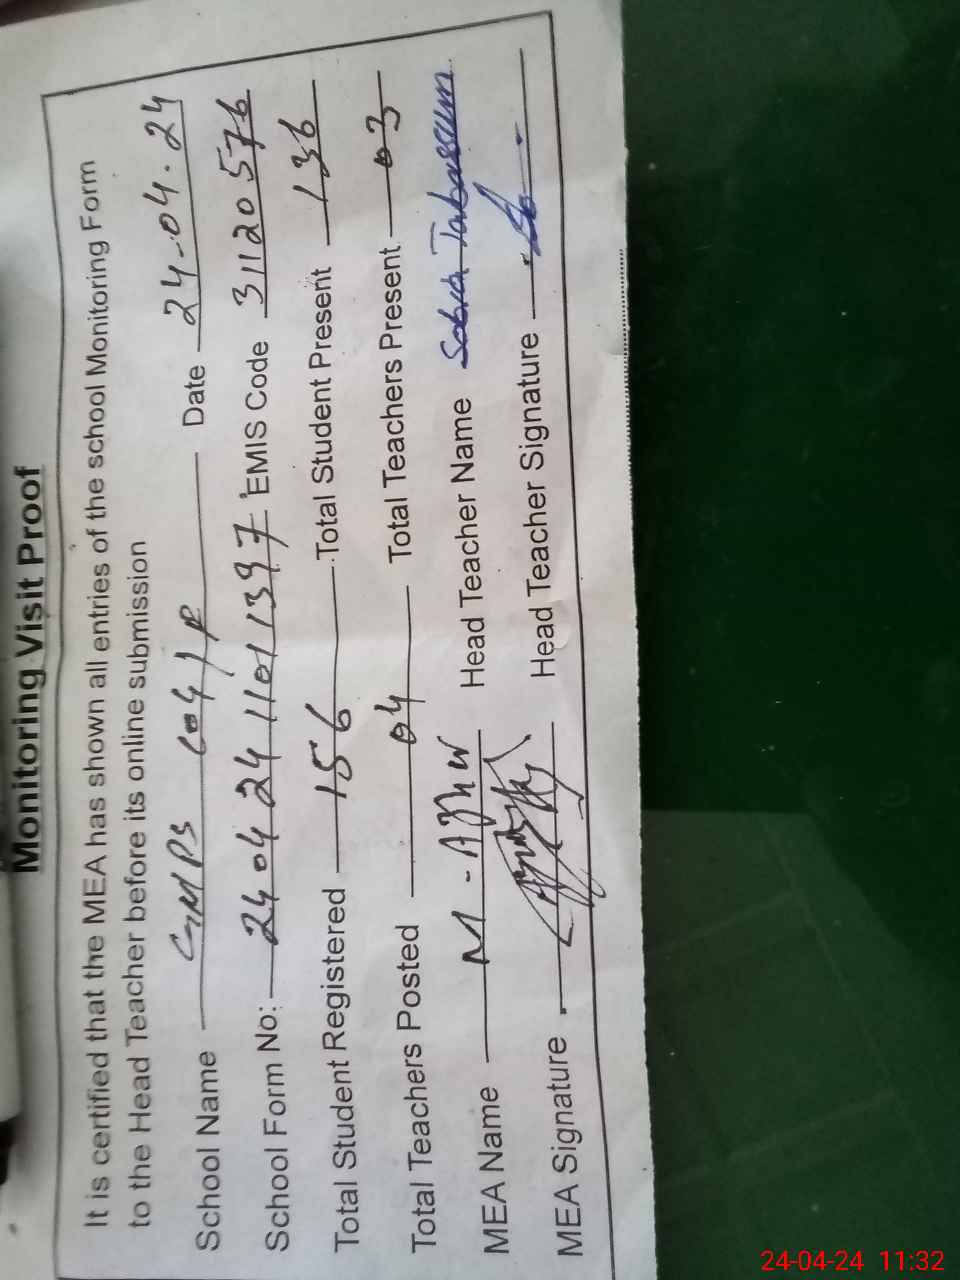 Monitoring Visit Proof
It is certified that the MEA has shown all entries of the school Monitoring Form
to the Head Teacher before its online submission
School Name GMPS 104/P Date 24-04.24
School Form No: 24 04 24 1101 1397 EMIS Code 31120576
Total Student Registered 156 Total Student Present 136
Total Teachers Posted 04 Total Teachers Present 03
MEA Name M - Head Teacher Name Tabassum
MEA Signature Head Teacher Signature
24-04-24 11:32